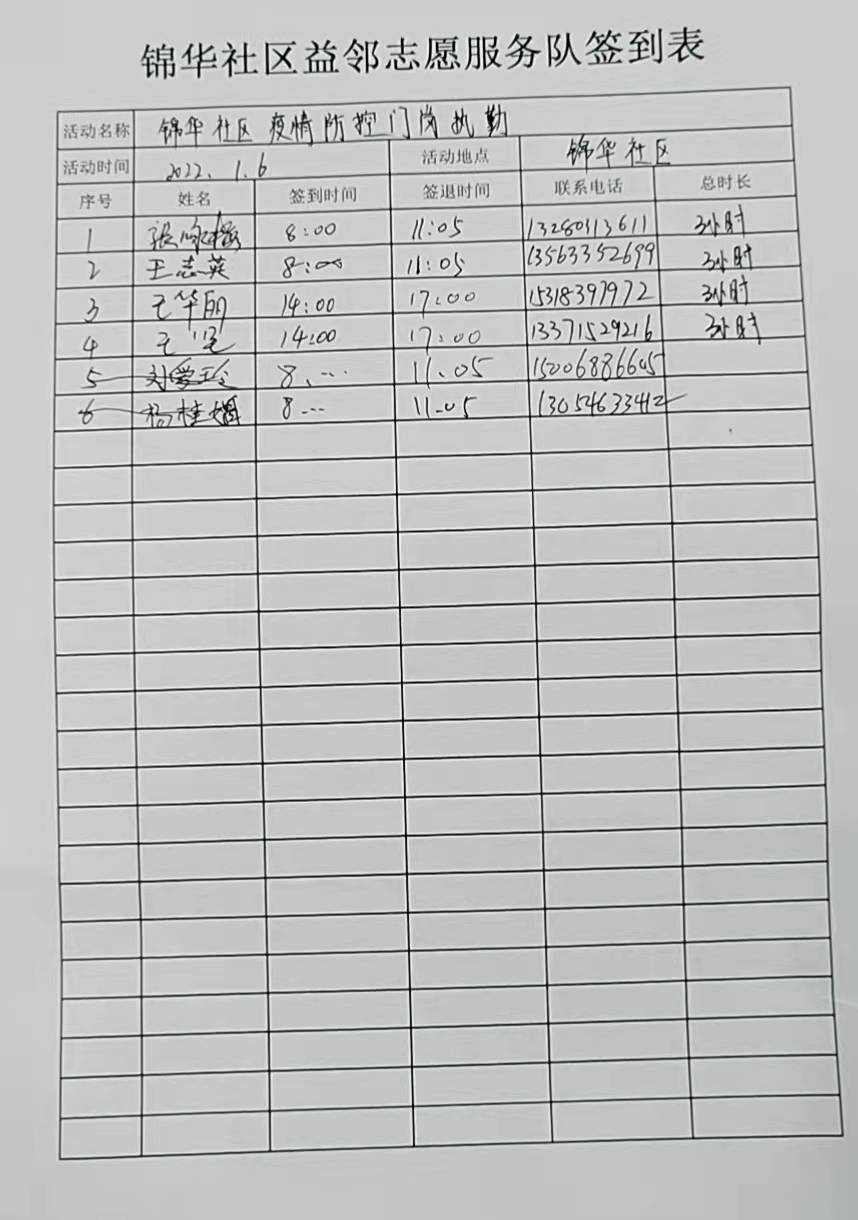 锦华社区益邻志愿服务队签到表
活动名称 锦华社区疫情防控门岗执勤
活动时间 2022.1.6 活动地点 锦华社区
序号 姓名 签到时间 签退时间 联系电话 总时长
1 张 8:00 11:05 3小时
2 王志英 8:00 11:05 13563352699 3小时
3 王华丽 14:00 17:00 15318397972 3小时
4 王 14:00 17:00 13371529216 3小时
5 刘爱玲 8 11.05 15006886605
6 杨桂娟 8 11.05 13054633412